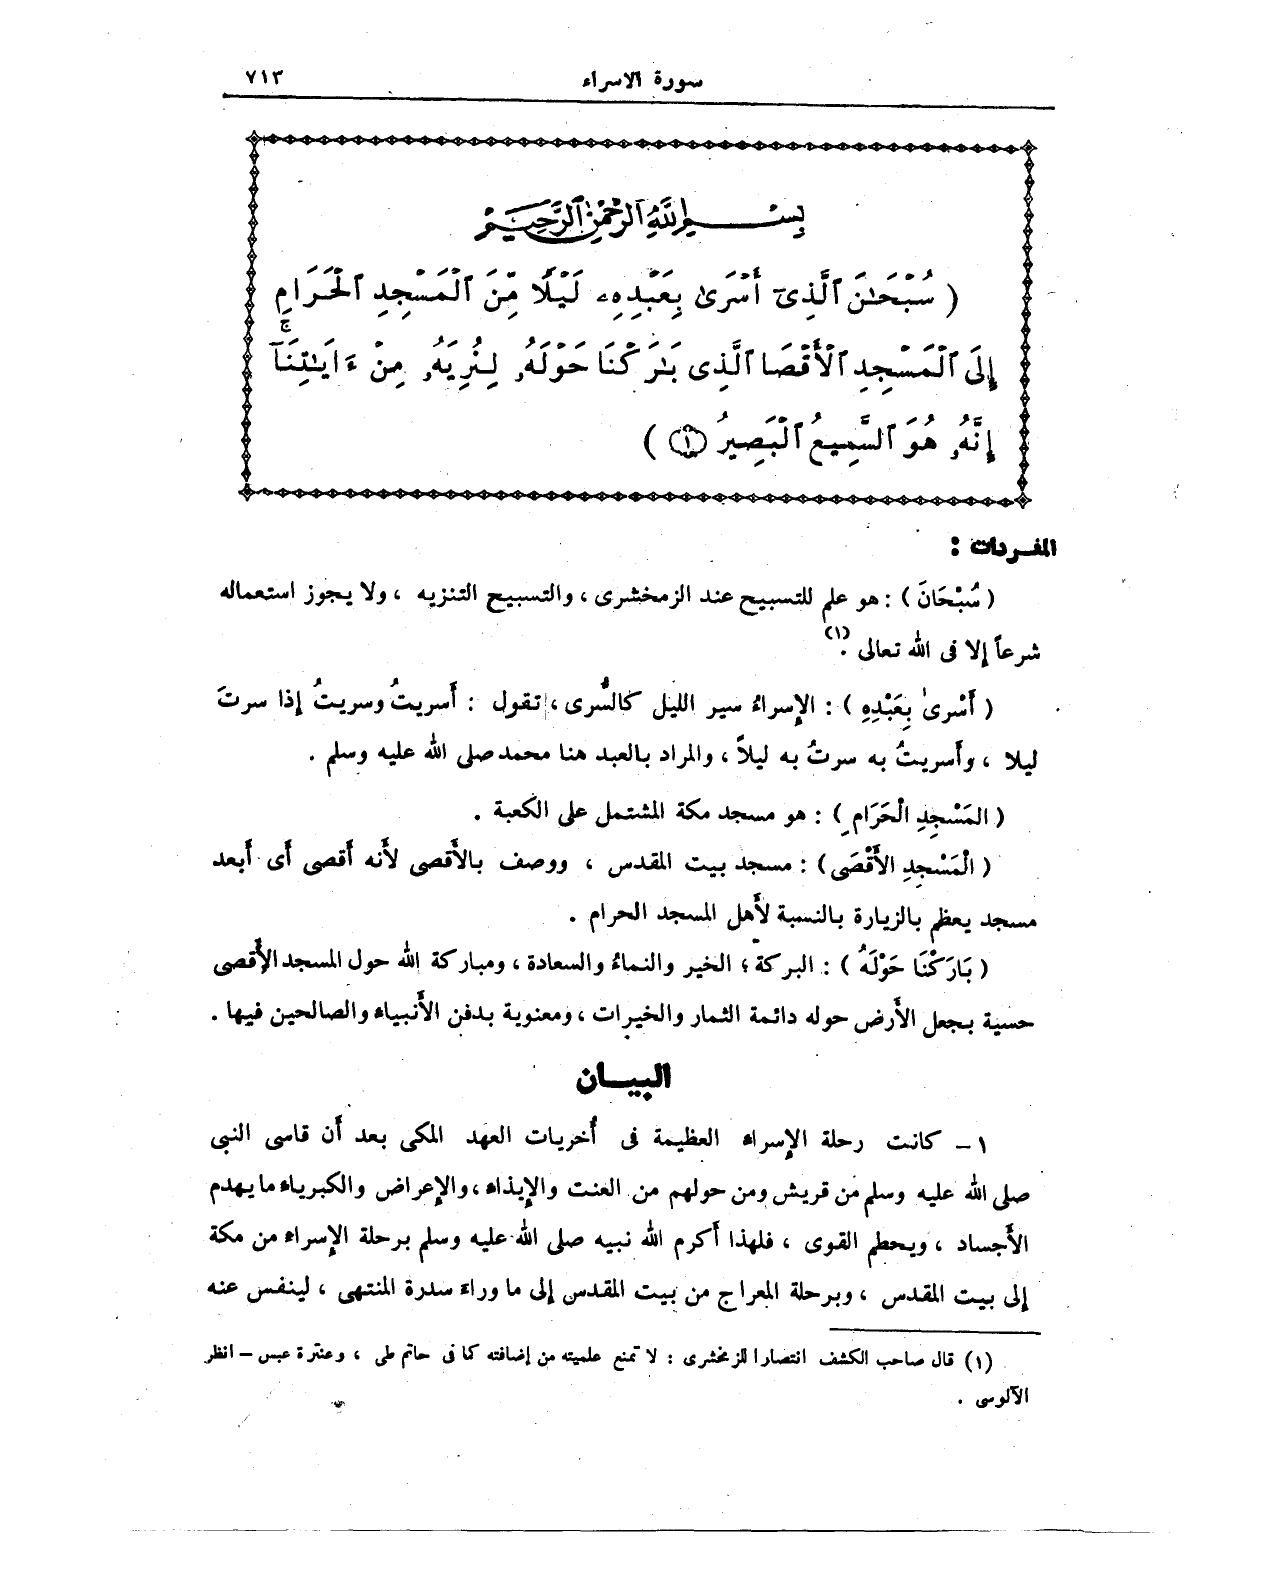 سورة الاسراء ٧١٣
بِسْمِ اللَّهِ الرَّحْمَٰنِ الرَّحِيمِ
( سُبْحَٰنَ ٱلَّذِىٓ أَسْرَىٰ بِعَبْدِهِۦ لَيْلًا مِّنَ ٱلْمَسْجِدِ ٱلْحَرَامِ
إِلَى ٱلْمَسْجِدِ ٱلْأَقْصَا ٱلَّذِى بَٰرَكْنَا حَوْلَهُۥ لِنُرِيَهُۥ مِنْ ءَايَٰتِنَآ ۚ
إِنَّهُۥ هُوَ ٱلسَّمِيعُ ٱلْبَصِيرُ ١ )
المفـردات :
( سُبْحَانَ ) : هو علم للتسبيح عند الزمخشرى ، والتسبيح التنزيه ، ولا يجوز استعماله
شرعاً إلا فى الله تعالى .(١)
( أَسْرىٰ بِعَبْدِهِ ) : الإسراءُ سير الليل كالسُّرى ، تقول : أسريتُ وسريتُ إذا سرتَ
ليلا ، وأسريتُ به سرتُ به ليلاً ، والمراد بالعبد هنا محمد صلى الله عليه وسلم .
( المَسْجِدِ الْحَرَامِ ) : هو مسجد مكة المشتمل على الكعبة .
( الْمَسْجِدِ الأَقْصَى ) : مسجد بيت المقدس ، ووصف بالأقصى لأنه أقصى أى أبعد
مسجد يعظم بالزيارة بالنسبة لأهل المسجد الحرام .
( بَارَكْنَا حَوْلَهُ ) : البركة ؛ الخير والنماءُ والسعادة ، ومباركة الله حول المسجد الأقصى
حسية بجعل الأرض حوله دائمة الثمار والخيرات ، ومعنوية بدفن الأنبياء والصالحين فيها .
البيـــان
١ – كانت رحلة الإسراء العظيمة فى أُخريات العهد المكى بعد أن قاسى النبى
صلى الله عليه وسلم من قريش ومن حولهم من العنت والإيذاء ، والإعراض والكبرياء ما يهدم
الأجساد ، ويحطم القوى ، فلهذا أكرم الله نبيه صلى الله عليه وسلم برحلة الإسراء من مكة
إلى بيت المقدس ، وبرحلة المعراج من بيت المقدس إلى ما وراء سدرة المنتهى ، لينفس عنه
(١) قال صاحب الكشف انتصارا للزمخشرى : لا تمنع علميته من إضافته كما فى حاتم طى ، وعنترة عبس – انظر
الآلوسى .